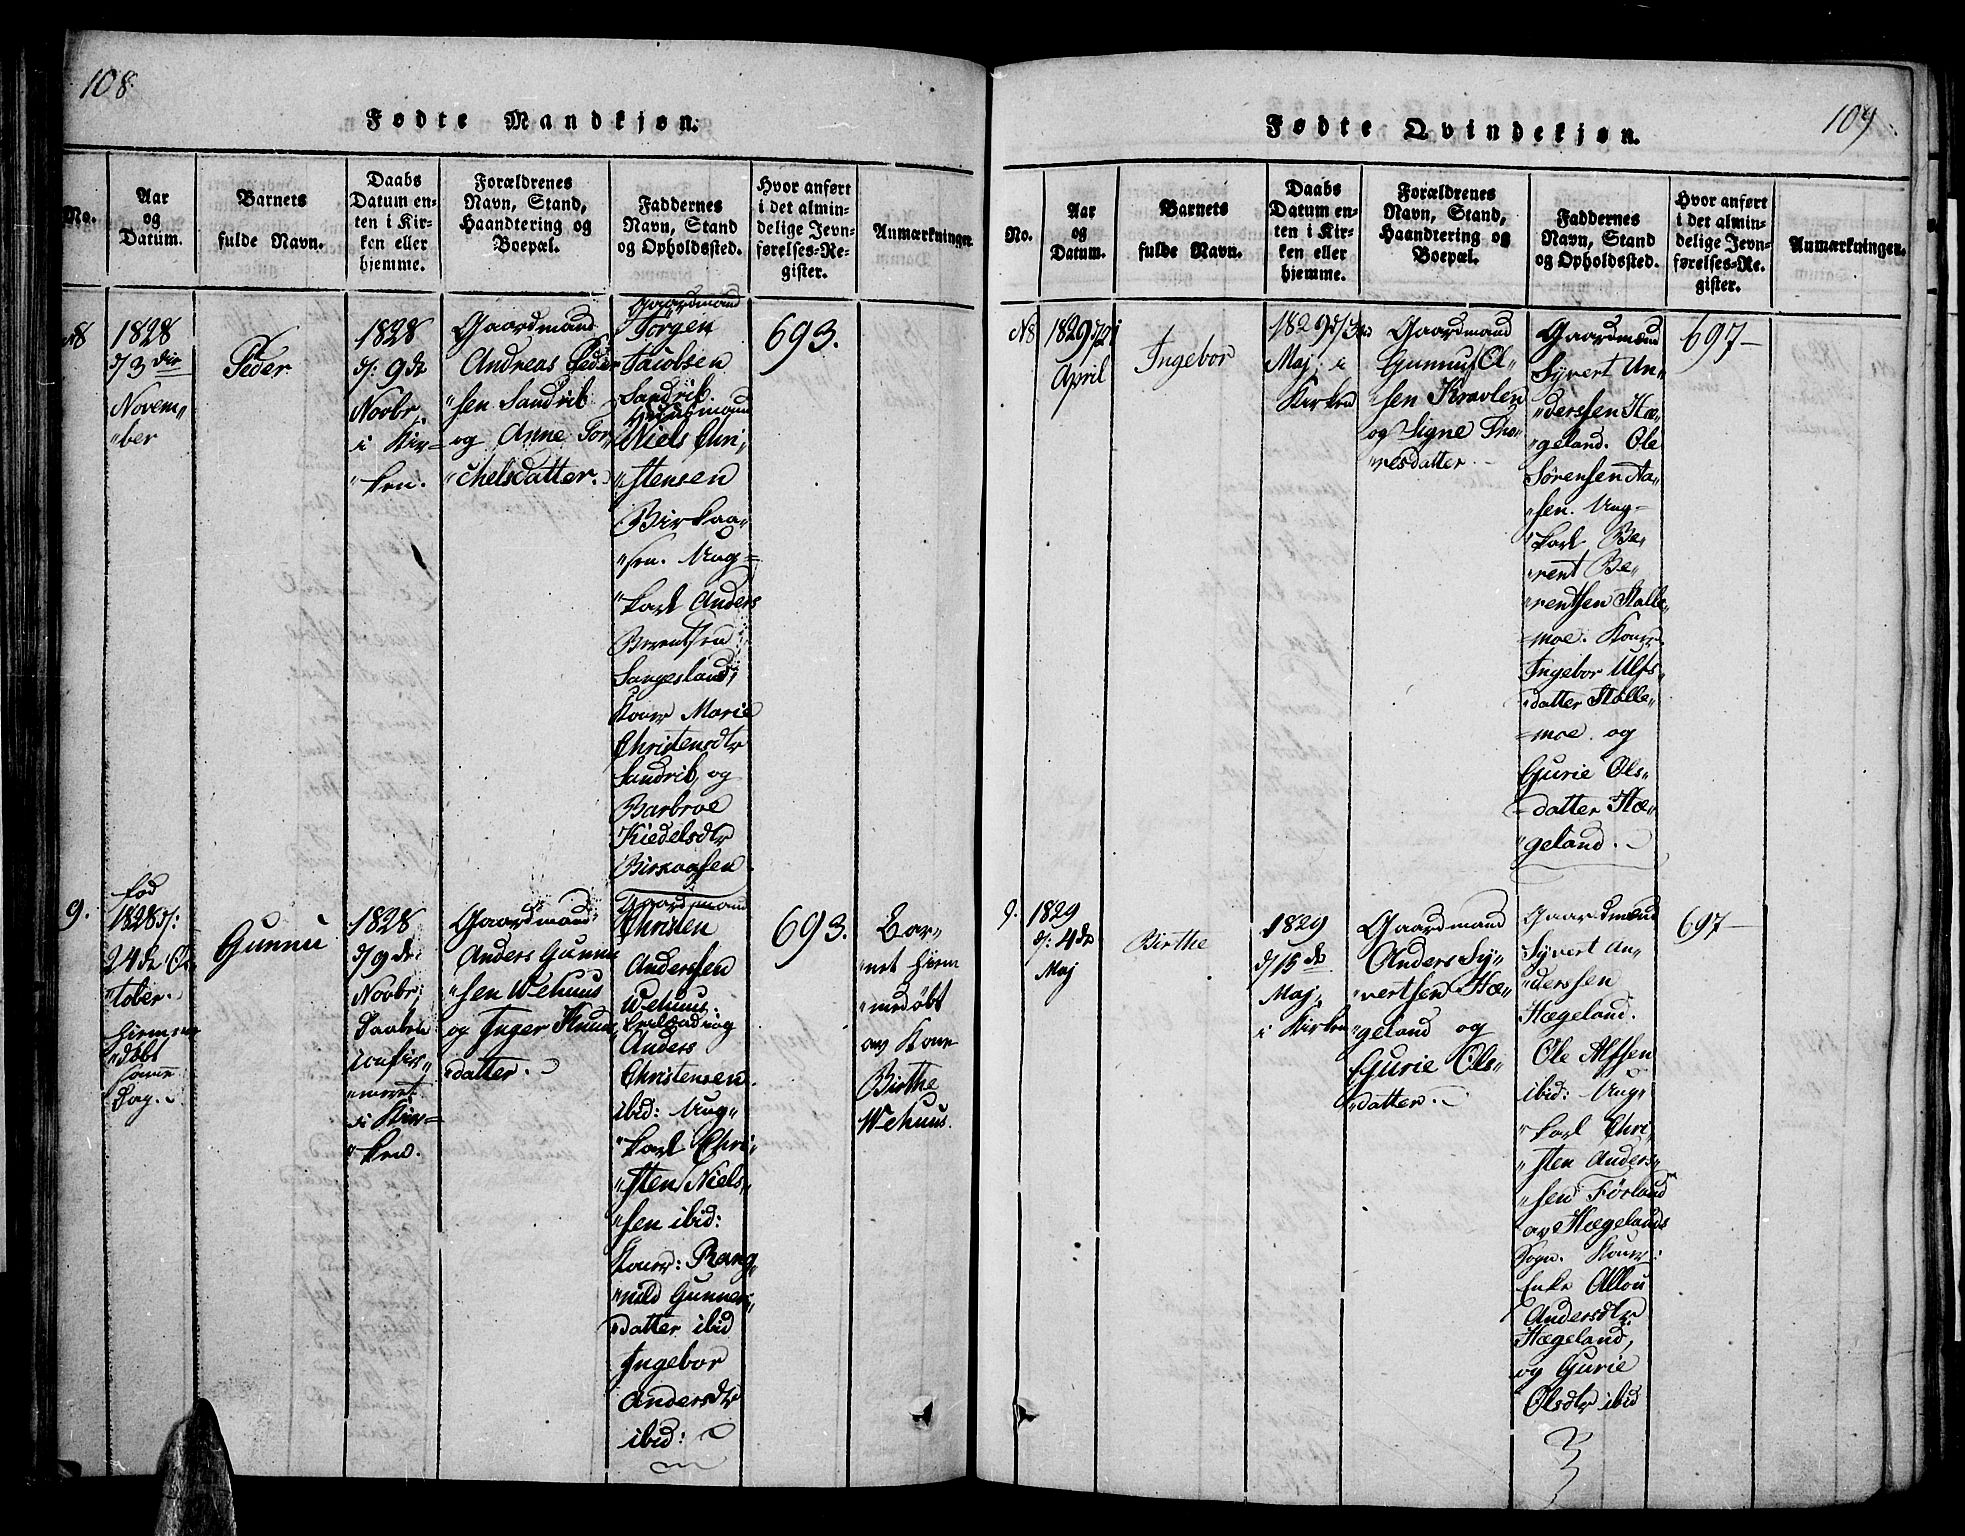 108.
Fødte Mandkjøn.
No.
Aar
og
Datum.
Barnets
fulde Navn.
Daabs
Datum en-
ten i Kir-
ken eller
hjemme.
Forældrenes
Navn, Stand,
Haandtering og
Boepæl.
Faddernes
Navn, Stand
og Opholdssted.
Hvor anført
i det almin-
delige Jevn-
førelses-Re-
gister.
Anmærkninger.
N8
1828
d/3 die
Novem„
„ber
Peder
1828
d: 9de
Novbr,
i Kir-
„ken.
Gaardmand
Andreas Peder
„sen Sandrib
og Anne Tor„
„chelsdatter.
Gaardmand
Torgen
Jacobsen
Sandrib.
Huusmand
Niels Chri„
„stensen
Birkaa„
„sen. Ung-
„karl Anders
Berentsen
Langesland,
Koner Marie
Christensdtr
Sandrib, og
Barbroe
Kiedelsdtr
Birkaasen
693.
9.
fød
1828 d:
24de Oc
„tober.
hiemme
„døbt
samme
Dag.
Gunnu
1828
d/9de
Novbr,
Daaben
confir„
„meret
i Kir-
„ken.
Gaardmand
Anders Gunnu
„sen Wehuus
og Inger Knuu„
„datter.
Gaardmand
Christen
Anderssen
Wehuus.
og
Anders
Christensen
ibid: Ung„
„karl Chri„
„sten Niels„
„sen ibid:
Koner: Rang„
„nild Gunners„
„datter ibid
Ingebor
Andersdtr
ibid:
693.
Bar-
„net hiem
„medøbt
av Kone
Birthe
Wehuus.
109
Fødte Qvindekjøn.
No.
Aar
og
Datum.
Barnets
fulde Navn.
Daabs
Datum en-
ten i Kir-
ken eller
hjemme.
Forældrenes
Navn, Stand,
Haandtering og
Boepæl.
Faddernes
Navn, Stand
og Opholdssted.
Hvor anført
i det almin-
delige Jevn-
førelses-Re-
gister.
Anmærkninger.
N8
1829 d/21
April
Ingebor
1829 d/3de
Maj i
Kirken
Gaardmand
Gunnu Ol„
„sen Kravlen
og Signe Tho„
„resdatter.
Gaardmænd
Syvert An„
„derssen Hæ„
„geland. Ole
Sørensen Aa„
„sen. Ung-
„karl Be„
„rent Be„
„rentsen Stalle„
„moe. Koner
Ingebor Ulfs„
„datter Stalle„
„moe og
Gurie Ols„
„datter Hæ„
„geland.
697
9.
1829
d: 4de
Maj
Birthe
1829
d/15de
Maj„
i Kirken
Gaardmand
Anders Sy„
„vertsen Hæ„
„geland og
Gurie Ols„
„datter.
Gaardmænd
Syvert An„
„derssen
Hægeland.
Ole Alfsen
ibid: Ung„
„karl Chri„
„sten Anders„
„sen Førland
av Hægelands
Sogn. Koner:
Enke Allou
Andersdtr
Hægeland,
og Gurie
Olsdtr ibid
697